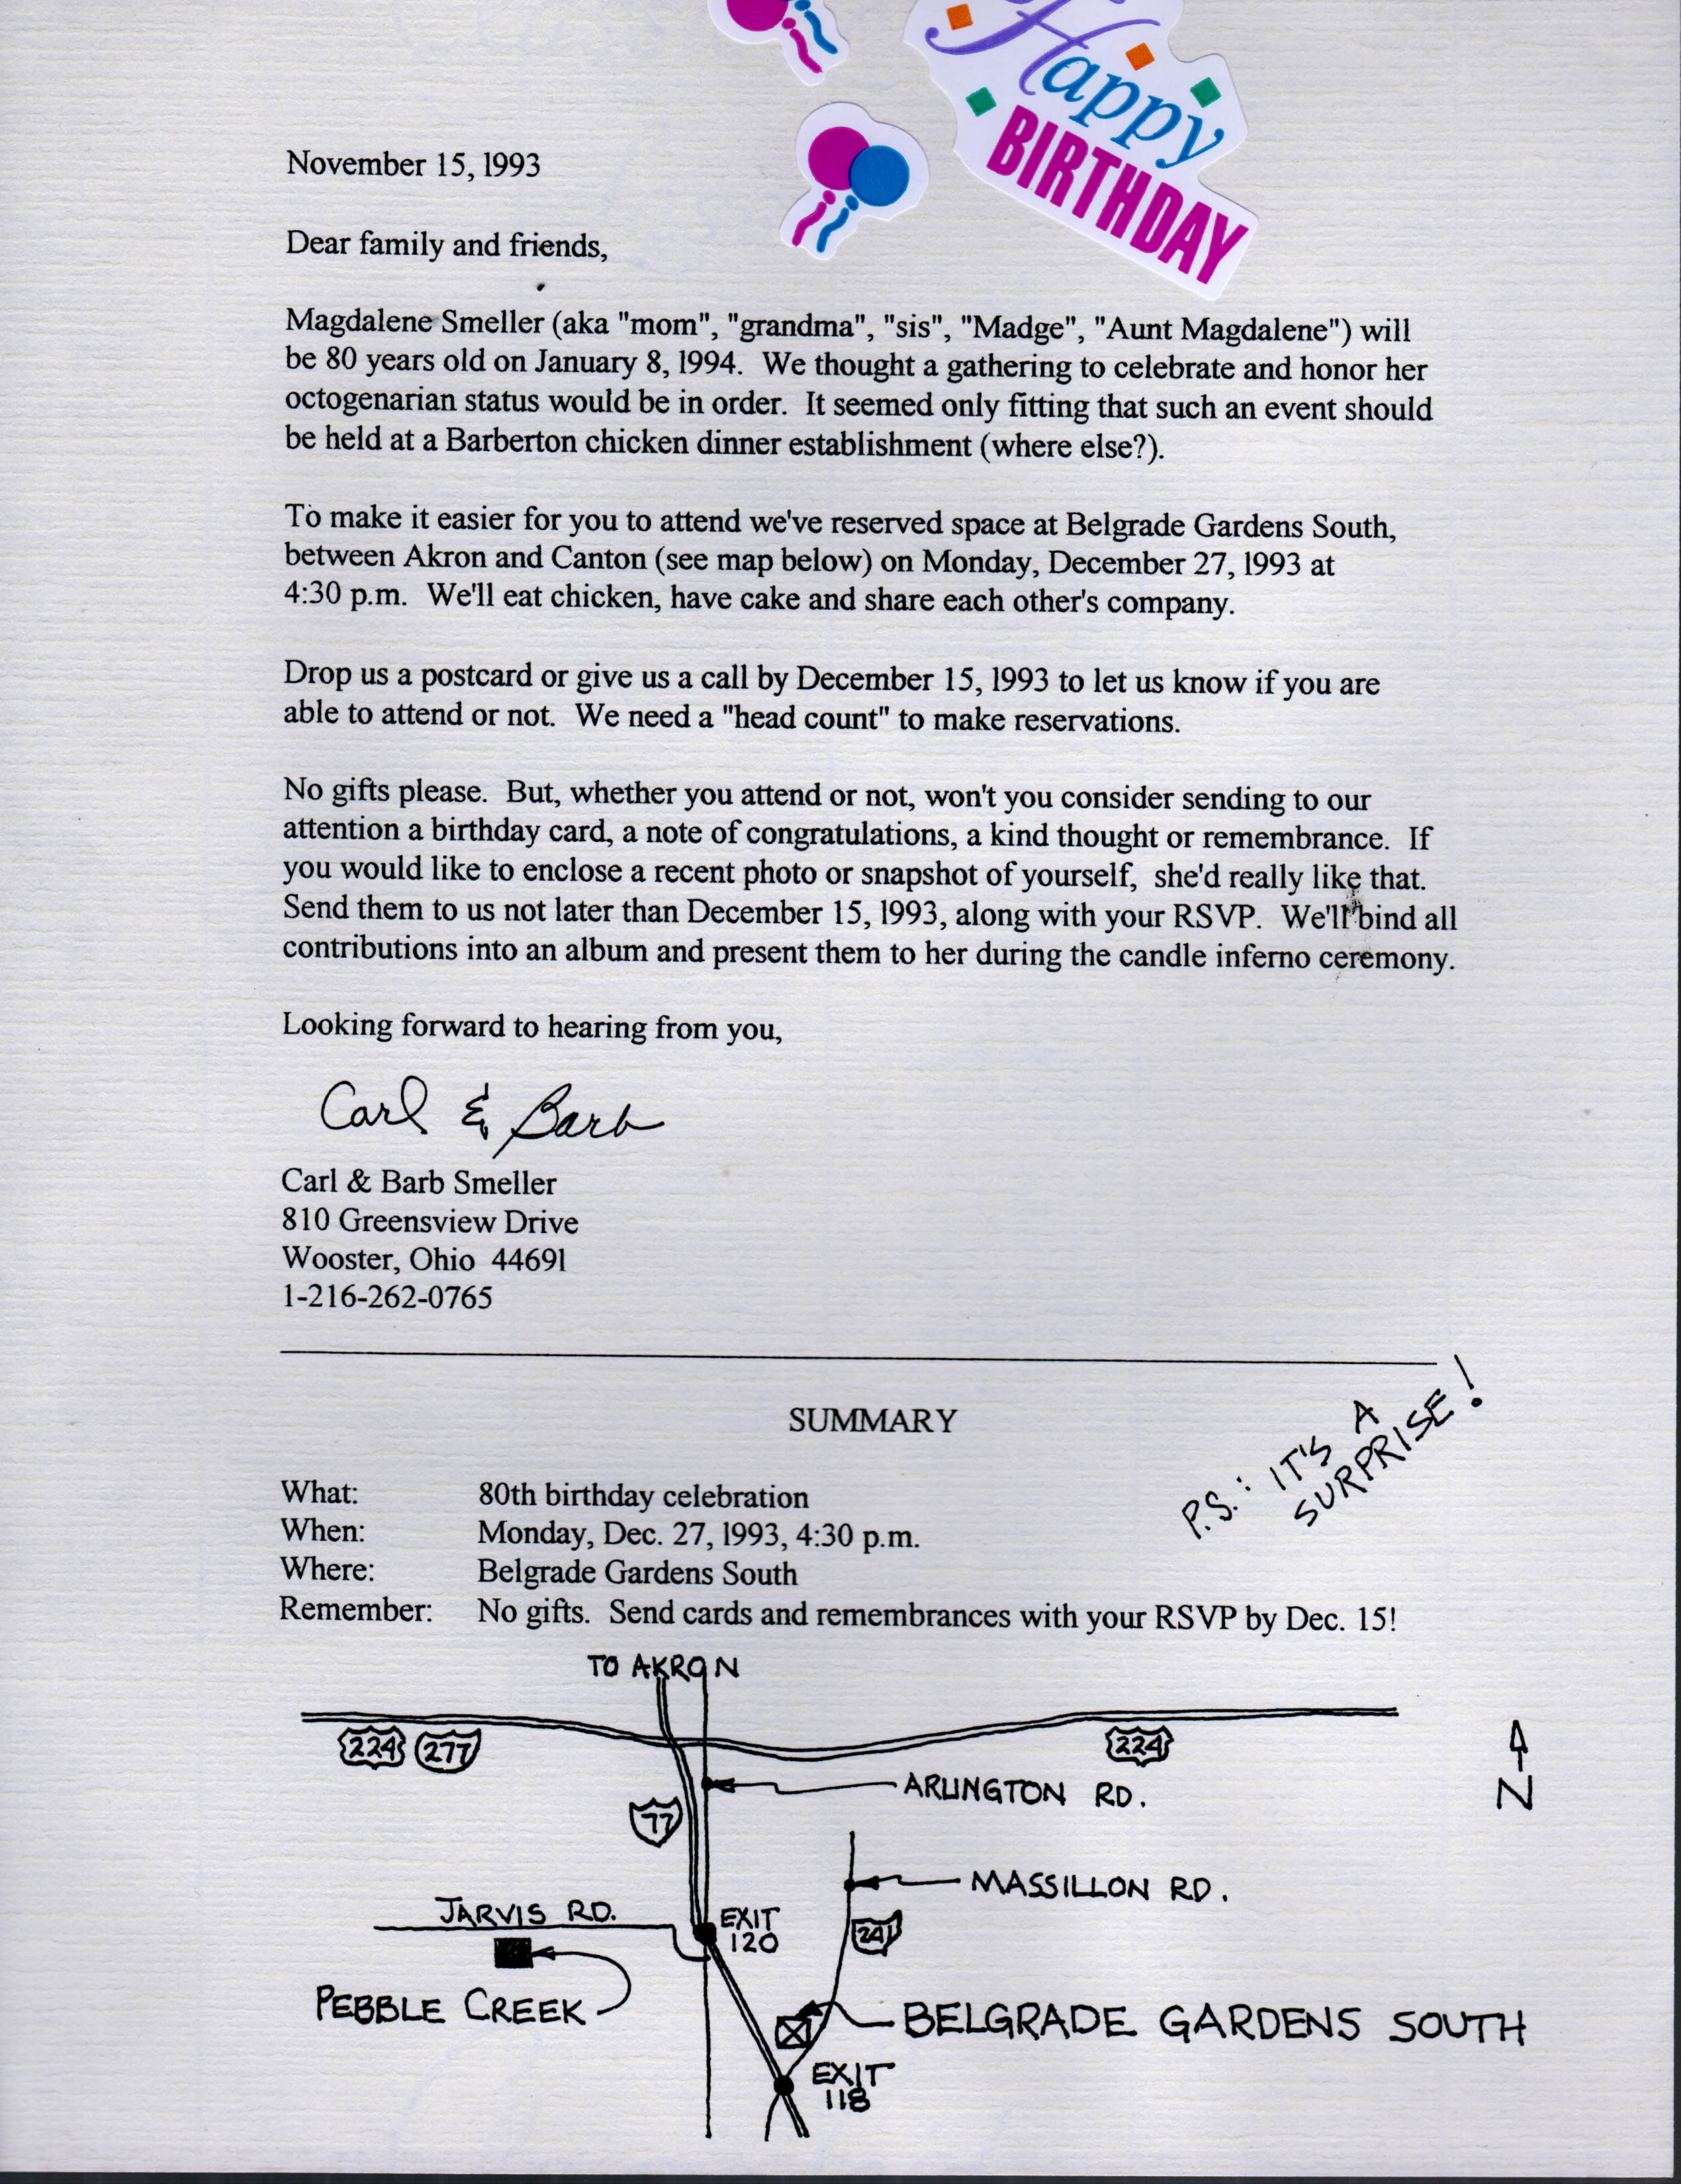 Happy
BIRTHDAY
November 15, 1993
Dear family and friends,
Magdalene Smeller (aka "mom", "grandma", "sis", "Madge", "Aunt Magdalene") will
be 80 years old on January 8, 1994.  We thought a gathering to celebrate and honor her
octogenarian status would be in order.  It seemed only fitting that such an event should
be held at a Barberton chicken dinner establishment (where else?).
To make it easier for you to attend we've reserved space at Belgrade Gardens South,
between Akron and Canton (see map below) on Monday, December 27, 1993 at
4:30 p.m.  We'll eat chicken, have cake and share each other's company.
Drop us a postcard or give us a call by December 15, 1993 to let us know if you are
able to attend or not.  We need a "head count" to make reservations.
No gifts please.  But, whether you attend or not, won't you consider sending to our
attention a birthday card, a note of congratulations, a kind thought or remembrance.  If
you would like to enclose a recent photo or snapshot of yourself,  she'd really like that.
Send them to us not later than December 15, 1993, along with your RSVP.  We'll bind all
contributions into an album and present them to her during the candle inferno ceremony.
Looking forward to hearing from you,
Carl & Barb
Carl & Barb Smeller
810 Greensview Drive
Wooster, Ohio  44691
1-216-262-0765
SUMMARY
P.S.: IT'S A
SURPRISE!
What: 80th birthday celebration
When: Monday, Dec. 27, 1993, 4:30 p.m.
Where: Belgrade Gardens South
Remember: No gifts.  Send cards and remembrances with your RSVP by Dec. 15!
TO AKRON
224 277
224
ARLINGTON RD.
N
77
MASSILLON RD.
JARVIS RD.
EXIT
120
241
PEBBLE CREEK
BELGRADE GARDENS SOUTH
EXIT
118